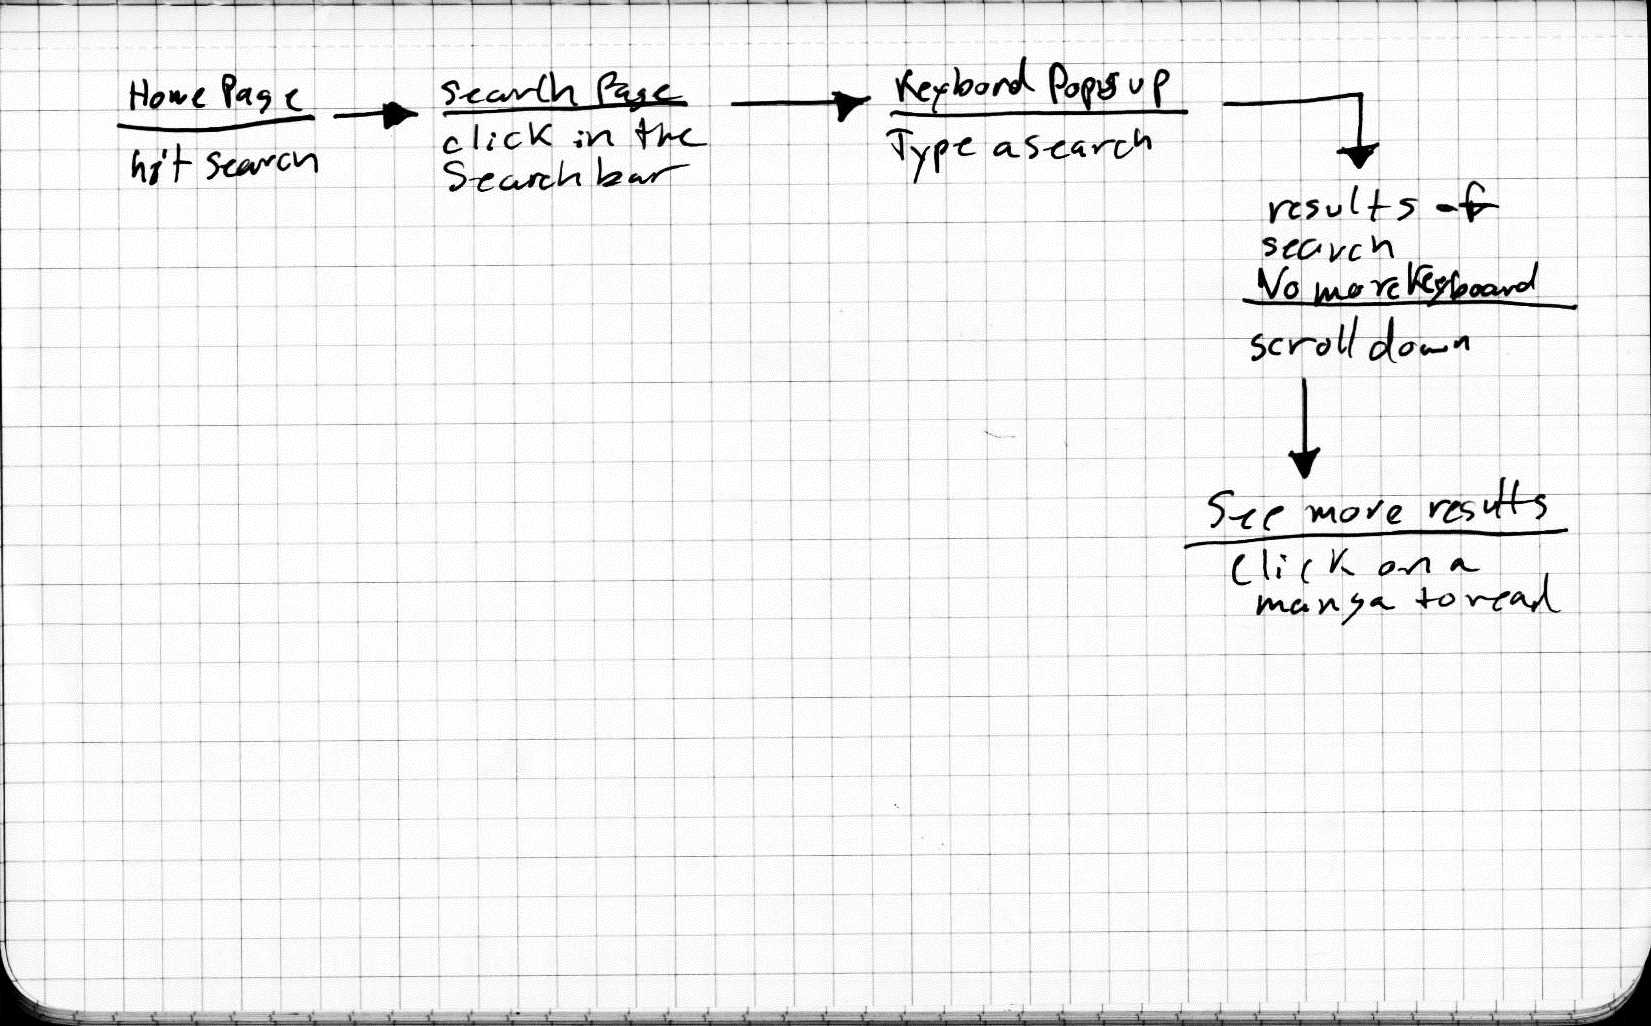 Home Page
hit search
search Page
click in the
Search bar
Keyboard Pops up
Type a search
results of
search
No more Keyboard
scroll down
See more results
Click on a
manga to read